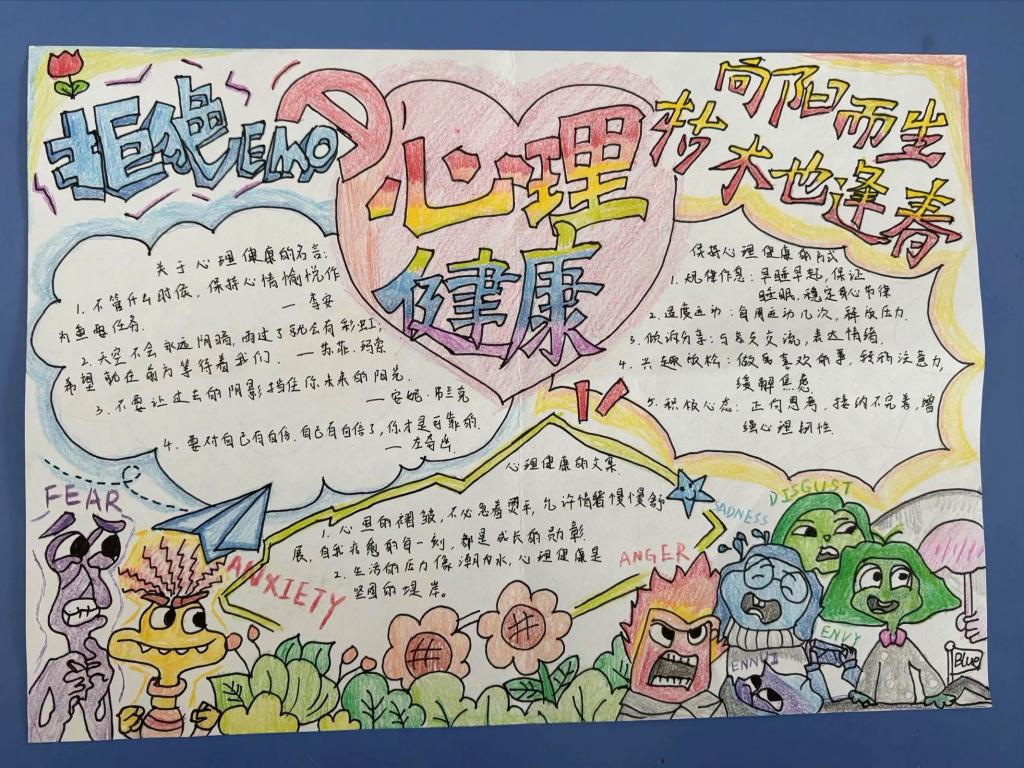 拒绝EMO
心理
健康
向阳而生
枯木也逢春
关于心理健康的名言:
1. 不管什么时候, 保持心情愉悦作
为重要任务. —李安
2. 天空不会永远阴暗, 雨过了就会有彩虹;
希望就在前方等待着我们. —苏菲·玛索
3. 不要让过去的阴影挡住你未来的阳光.
—安妮·弗兰克
4. 要对自己有自信. 自己有自信了, 你才是可靠的.
—左奇函
保持心理健康的方式
1. 规律作息: 早睡早起, 保证
睡眠, 稳定身心节律
2. 适度运动: 每周运动几次, 释放压力.
3. 倾诉分享: 与亲友交流, 表达情绪.
4. 兴趣放松: 做写喜欢的事, 转移注意力,
缓解焦虑
5. 积极心态: 正向思考, 接纳不完美, 增
强心理韧性.
心理健康的文案
1. 心里的褶皱, 不必急着烫平, 允许情绪慢慢舒
展, 自我疗愈的每一刻, 都是成长的勋彰.
2. 生活的压力像潮水, 心理健康是
坚固的堤岸。
FEAR
ANXIETY
ANGER
SADNESS
DISGUST
ENVY
ENNUI
Blue